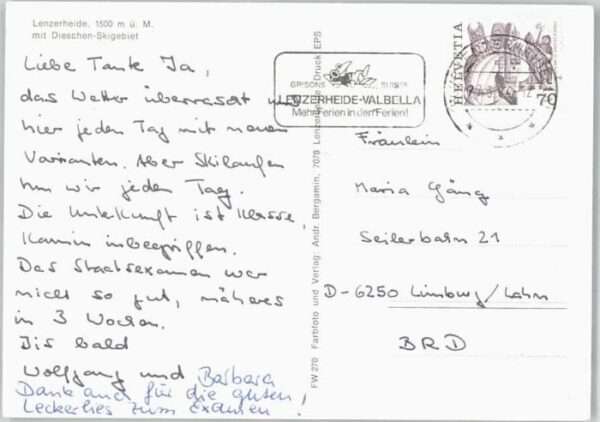 Lenzerheide, 1500 m ü. M.
mit Dieschen-Skigebiet
Liebe Tante Ja,
das Wetter überrascht uns
hier jeden Tag mit neuen
Varianten. Aber Skilaufen
tun wir jeden Tag.
Die Unterkunft ist Klasse,
Kamin inbegriffen.
Das Staatsexamen war
nicht so gut, näheres
in 3 Wochen.
Bis bald
Wolfgang und Barbara
Dank auch für die guten
Leckerlies zum Examen!
FW 278 Farbfoto und Verlag Andr. Bergamin, 7078 Lenzerheide Druck EPS
GRISONS
LENZERHEIDE-VALBELLA
Mehr Ferien in den Ferien!
HELVETIA
70
Fräulein
Maria Gäng
Seilerbahn 21
D-6250 Limburg/Lahn
BRD